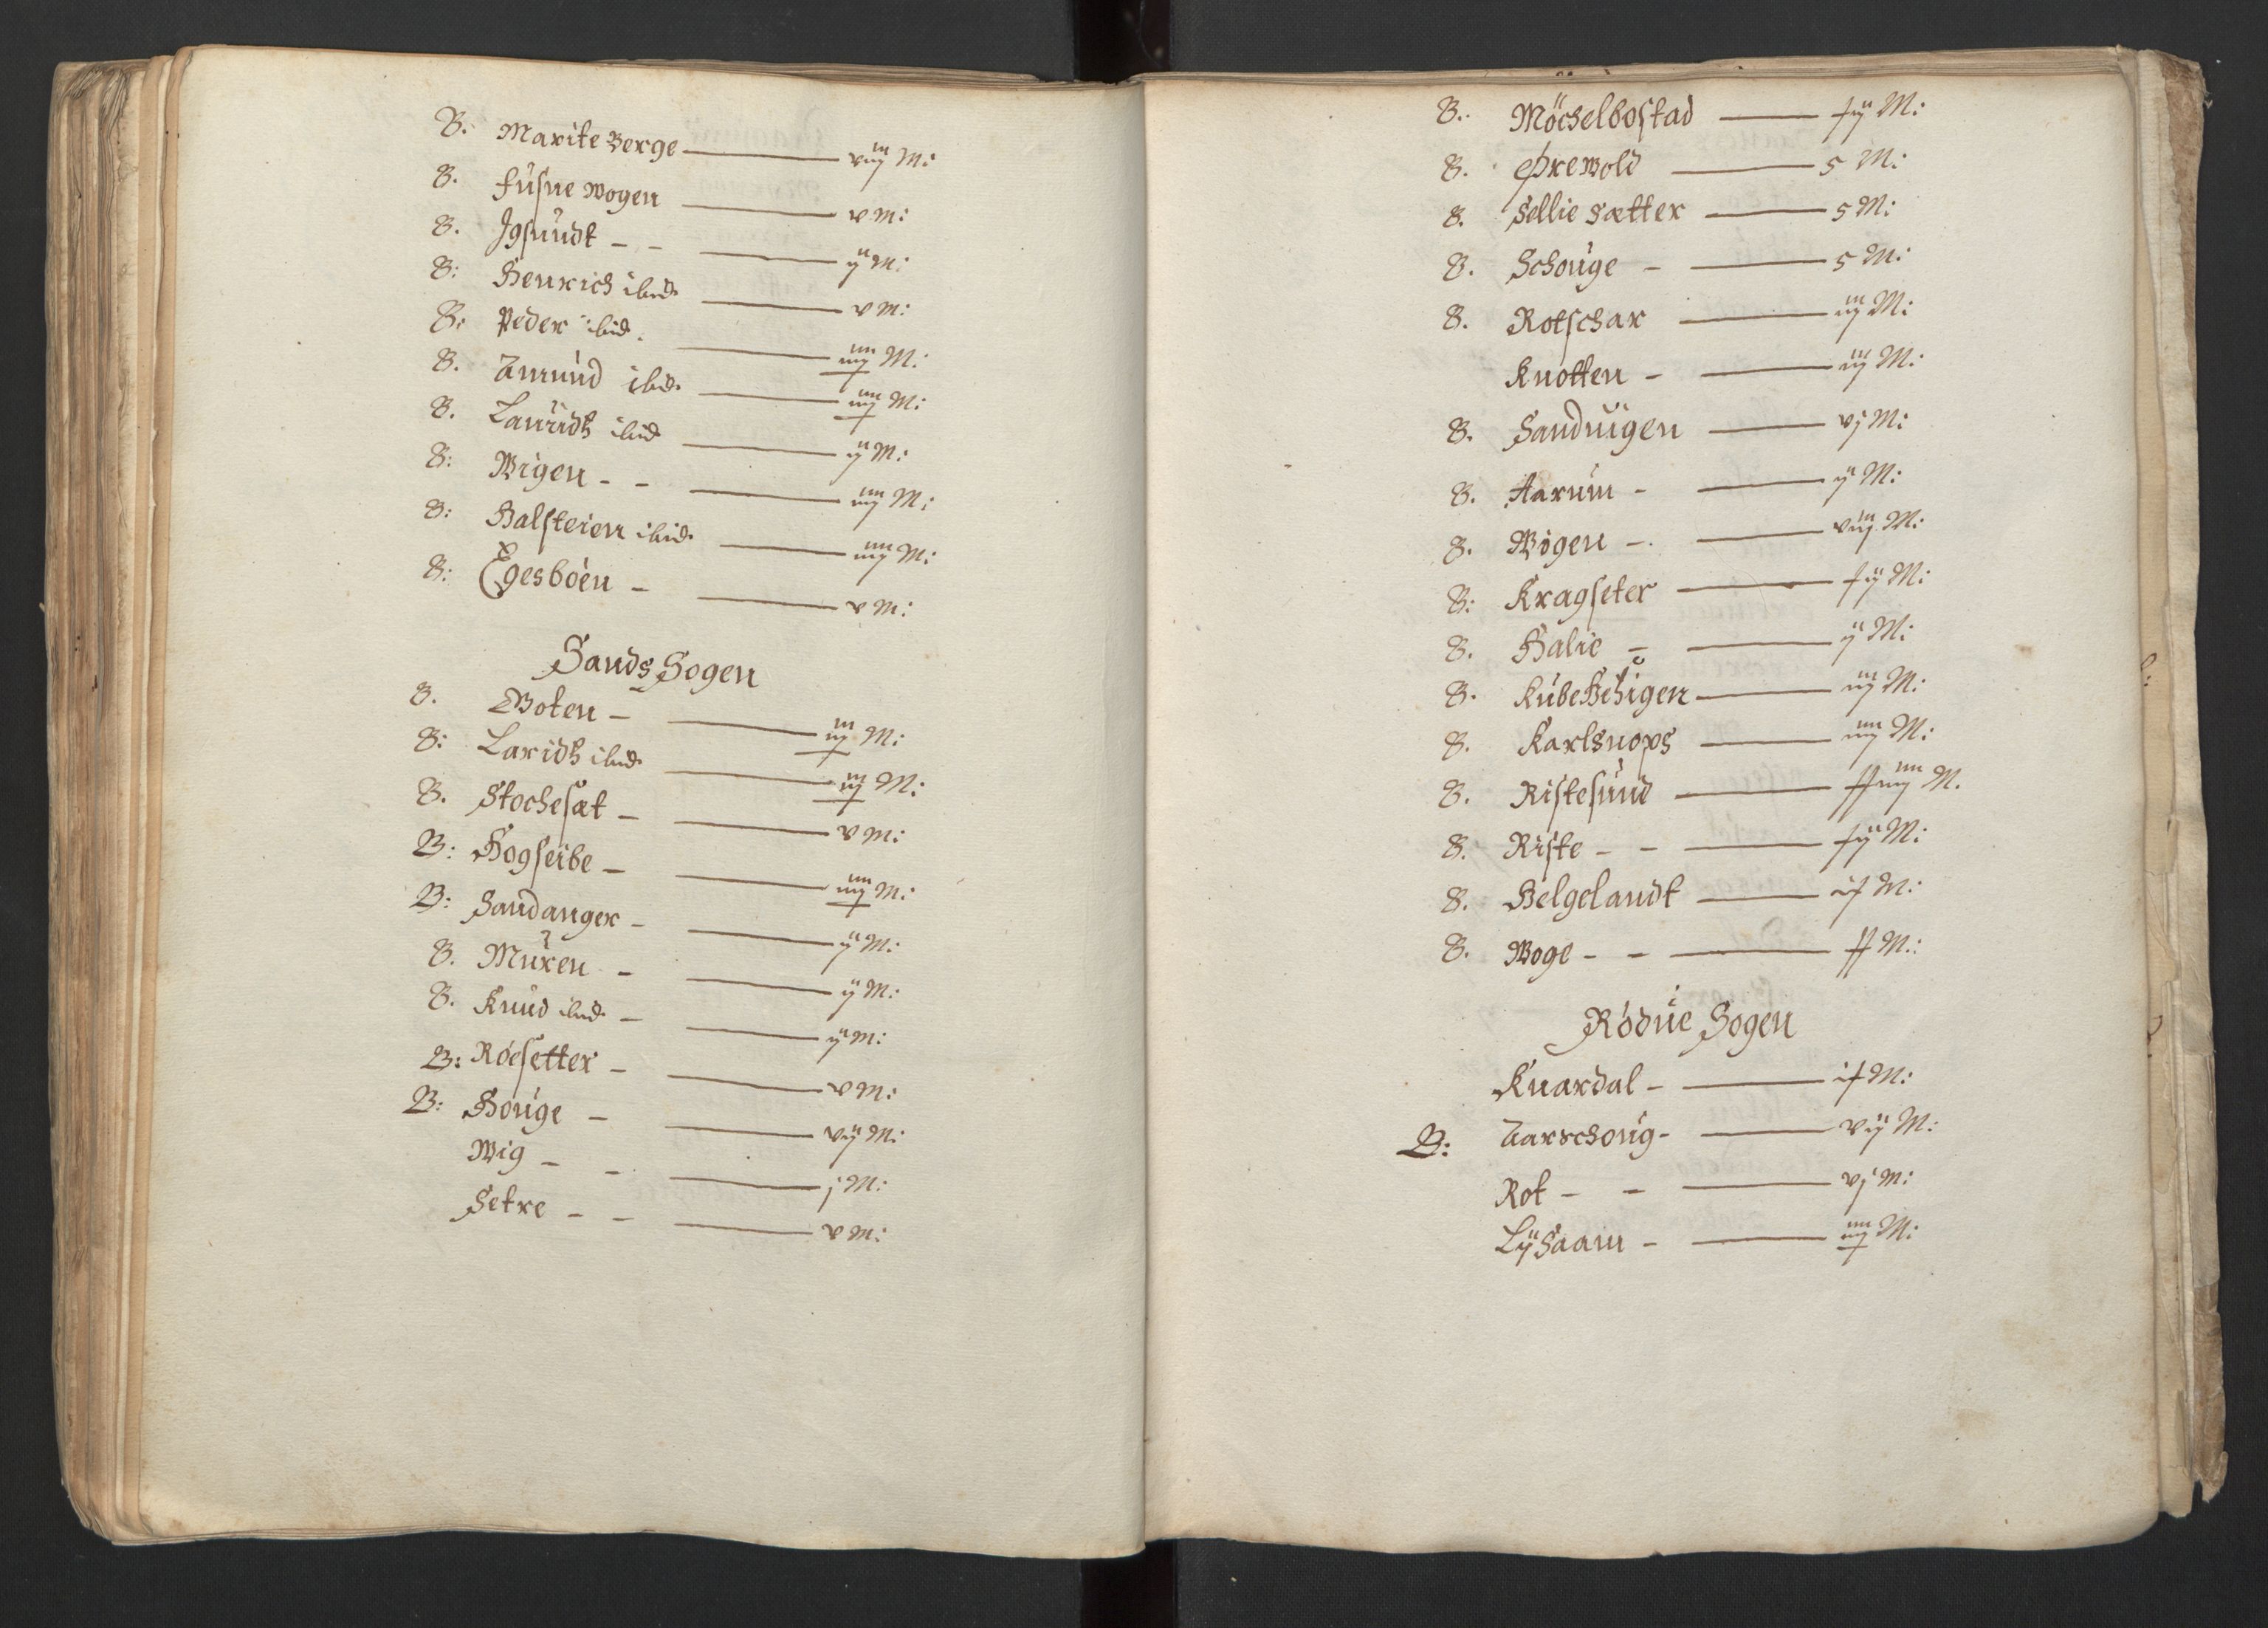 B. Marite Berge — viij M:
B. Fusne Wogen — v M:
B. Jgsundt - - — ij M:
B: Henrich ibid. — v M:
B: Peder ibid. — iiij M:
B. Amund ibid. — iiij M:
B. Lauridtz ibid — ij M:
B: Wigen - - — iiij M:
B: Halsteien ibid. — iiij M:
B: Egesboen - — v M:
Sands Sogen
B. Woten - — iij M:
B: Laridtz ibid. — iij M:
B. Stochesæt - — v M:
B: Hogseibe - — iiij M:
B: Sandanger - — ij M:
B. Muren - — ij M:
B. Knud ibid. - — ij M:
B: Röesetter - — v M:
B: Houge - — vij M:
Wig - - — j M:
Setre - - — v M:
B. Möchelbostad — ij M:
B. Ørewold — 5 M:
B. Sellie sætter — 5 M:
B. Schouge - — 5 M:
B. Rotschar — iij M:
Knotten - — iij M:
B. Sanduigen — vj M:
B. Aarum - — ij M:
B. Wogen - — viij M:
B: Kragseter — ij M:
B. Halie - — ij M:
B. — iij M:
B. Karlsnops — iiij M:
B. Ristesund — M.
B. Riste - - — ij M:
B. Helgelandt — M:
B. Woge - - — M:
Rödue Sogen
Knardal - — M:
B: Aarschoug - — vij M:
Rot - - — vj M:
Lysaam - — iiij M: